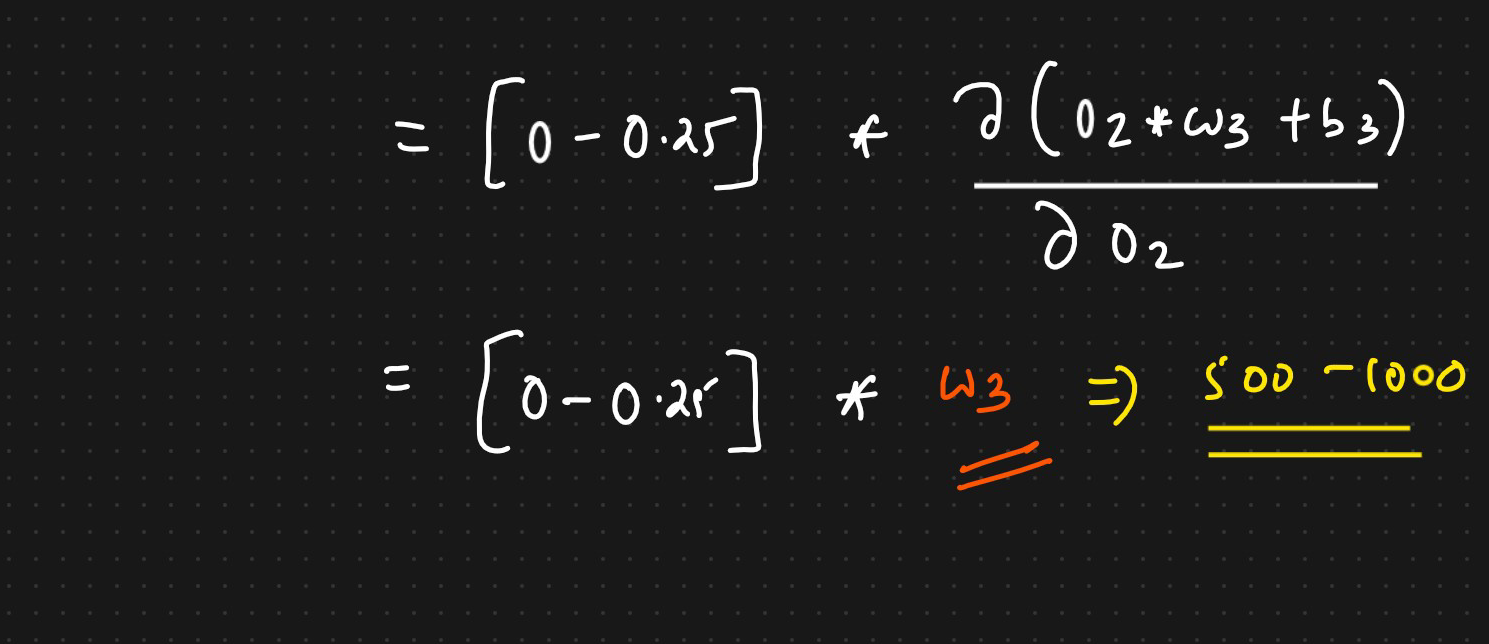 = [0 - 0.25] * ∂(O₂ * w₃ + b₃) / ∂O₂
= [0 - 0.25] * w₃ ⇒ 500 - 1000